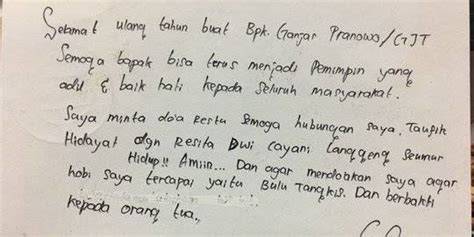 Selamat ulang tahun buat Bpk. Ganjar Pranowo/GJT
Semoga bapak bisa terus menjadi Pemimpin yang
adil & baik hati kepada seluruh masyarakat.
Saya minta do'a Restu Semoga hubungan saya, Taupik
Hidayat dgn Resita Dwi Cayani Langgeng Seumur
Hidup!! Amiin... Dan agar mendo'akan saya agar
hobi saya tercapai yaitu Bulu Tangkis. Dan berbakti
kepada orang tua.,